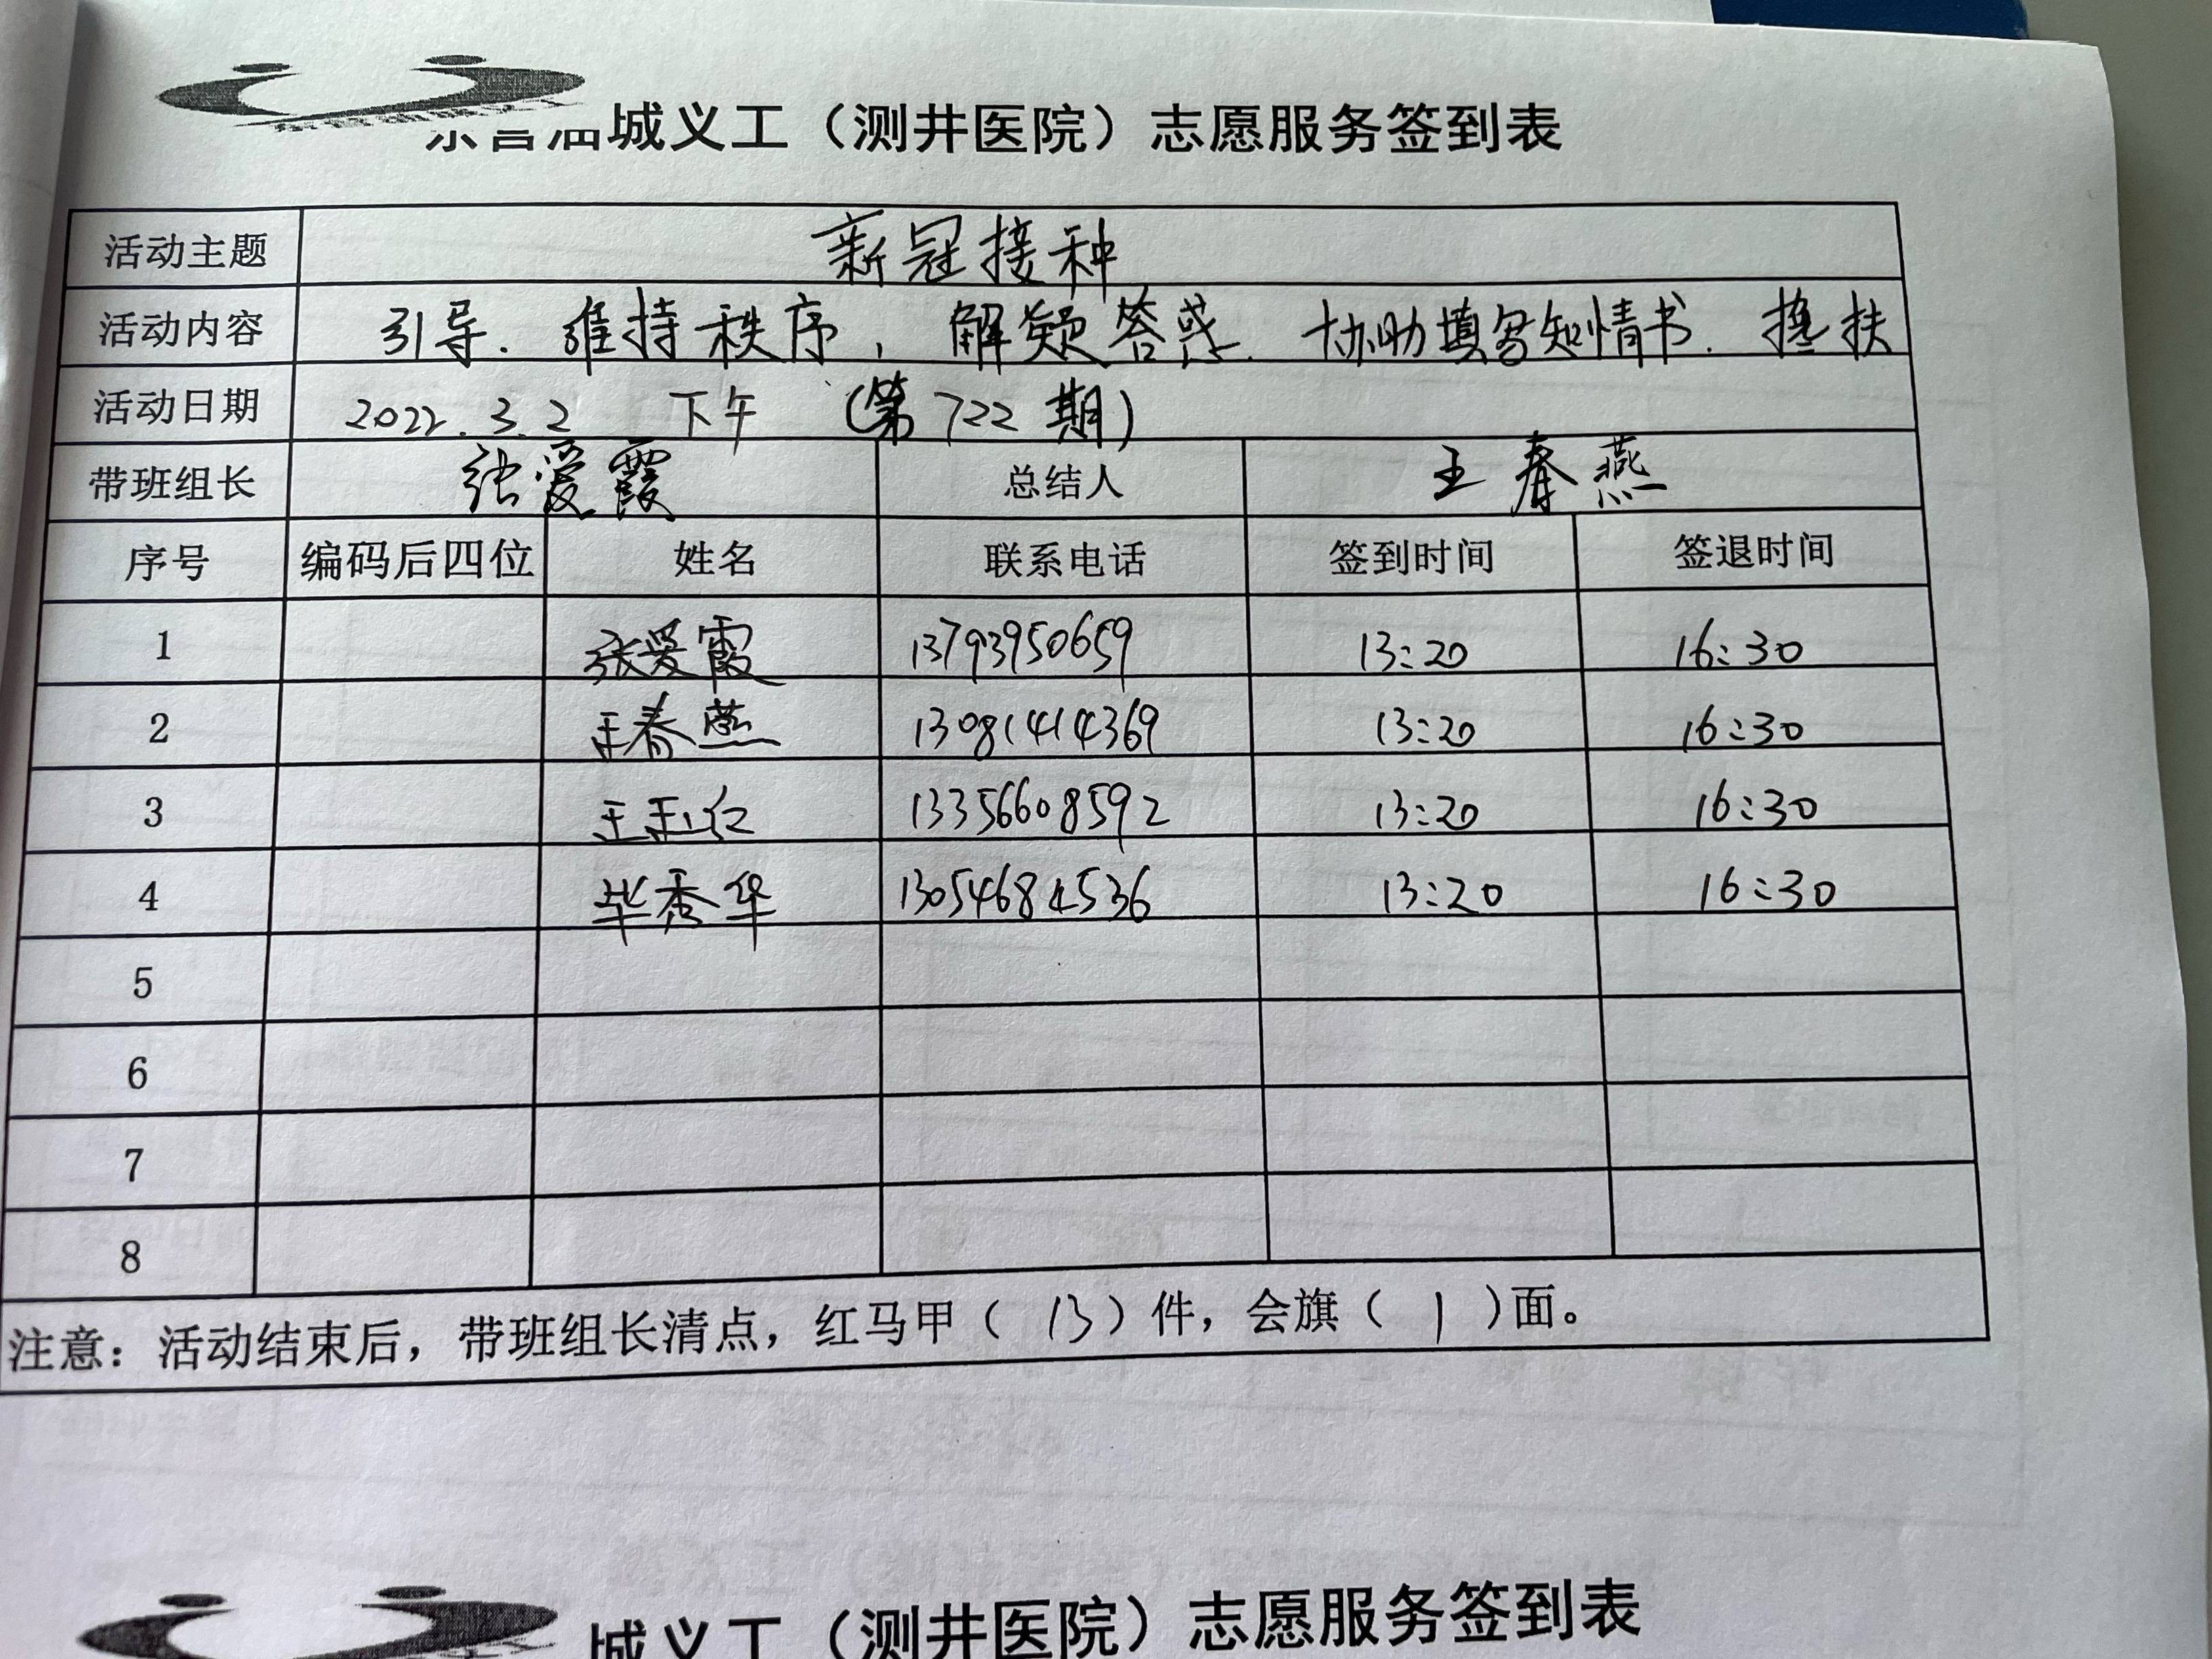 东营油城义工（测井医院）志愿服务签到表
活动主题 新冠接种
活动内容 引导. 维持秩序, 解疑答惑. 协助填写知情书. 搀扶
活动日期 2022.3.2 下午 (第722期)
带班组长 张爱霞 总结人 王春燕
序号 编码后四位 姓名 联系电话 签到时间 签退时间
1 张爱霞 13793950659 13:20 16:30
2 王春燕 13081414369 13:20 16:30
3 王玉仁 13356608592 13:20 16:30
4 毕秀华 13054684536 13:20 16:30
5
6
7
8
注意：活动结束后，带班组长清点，红马甲（ 13 ）件，会旗（ 1 ）面。
城义工（测井医院）志愿服务签到表